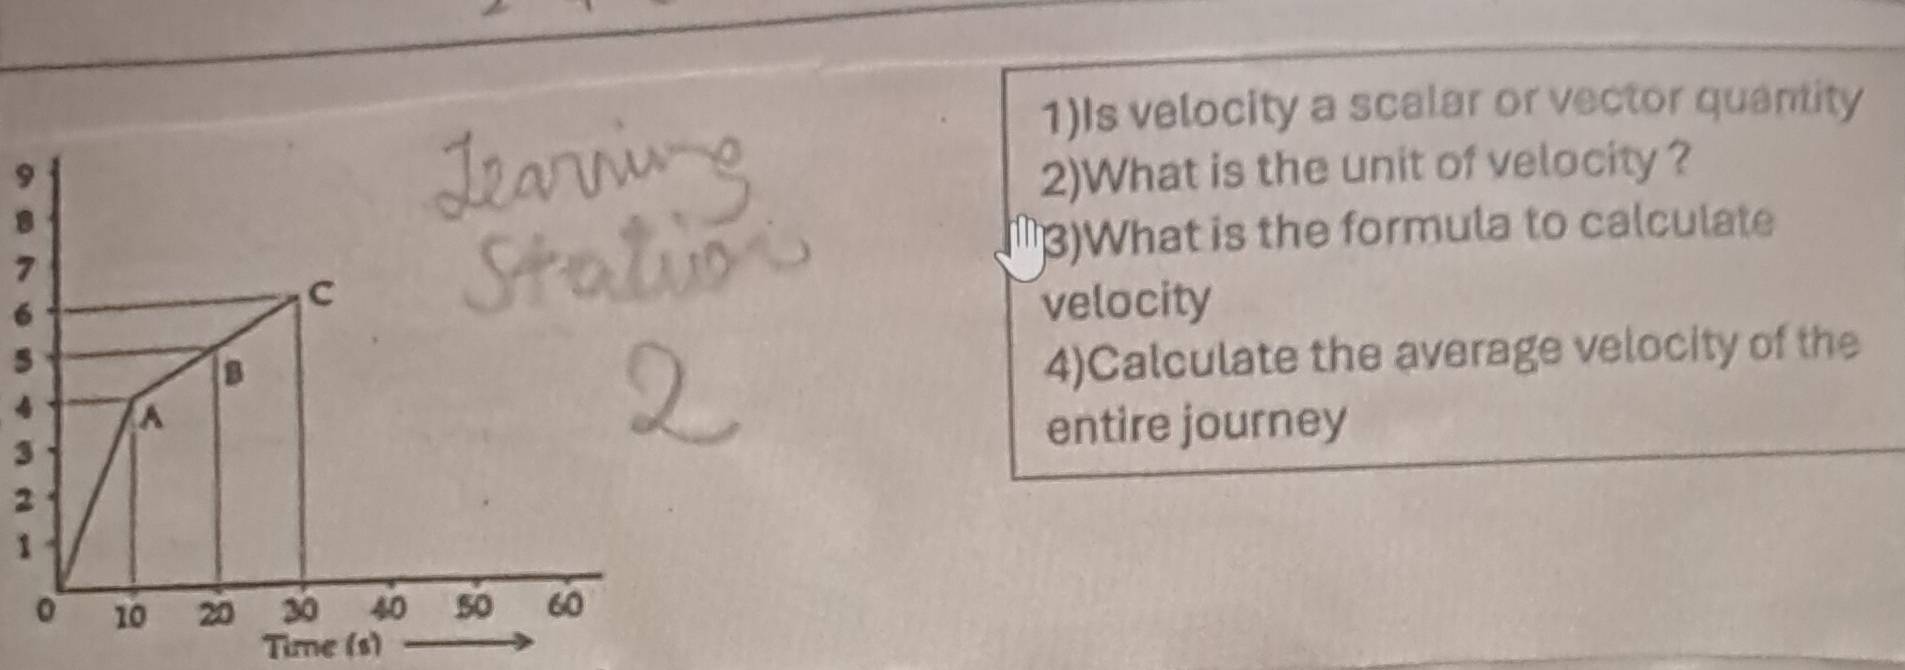 Learning
Station
2
9
8
7
6
5
4
3
2
1
C
B
A
0 10 20 30 40 50 60
Time (s)
1)Is velocity a scalar or vector quantity
2)What is the unit of velocity ?
3)What is the formula to calculate
velocity
4)Calculate the average velocity of the
entire journey